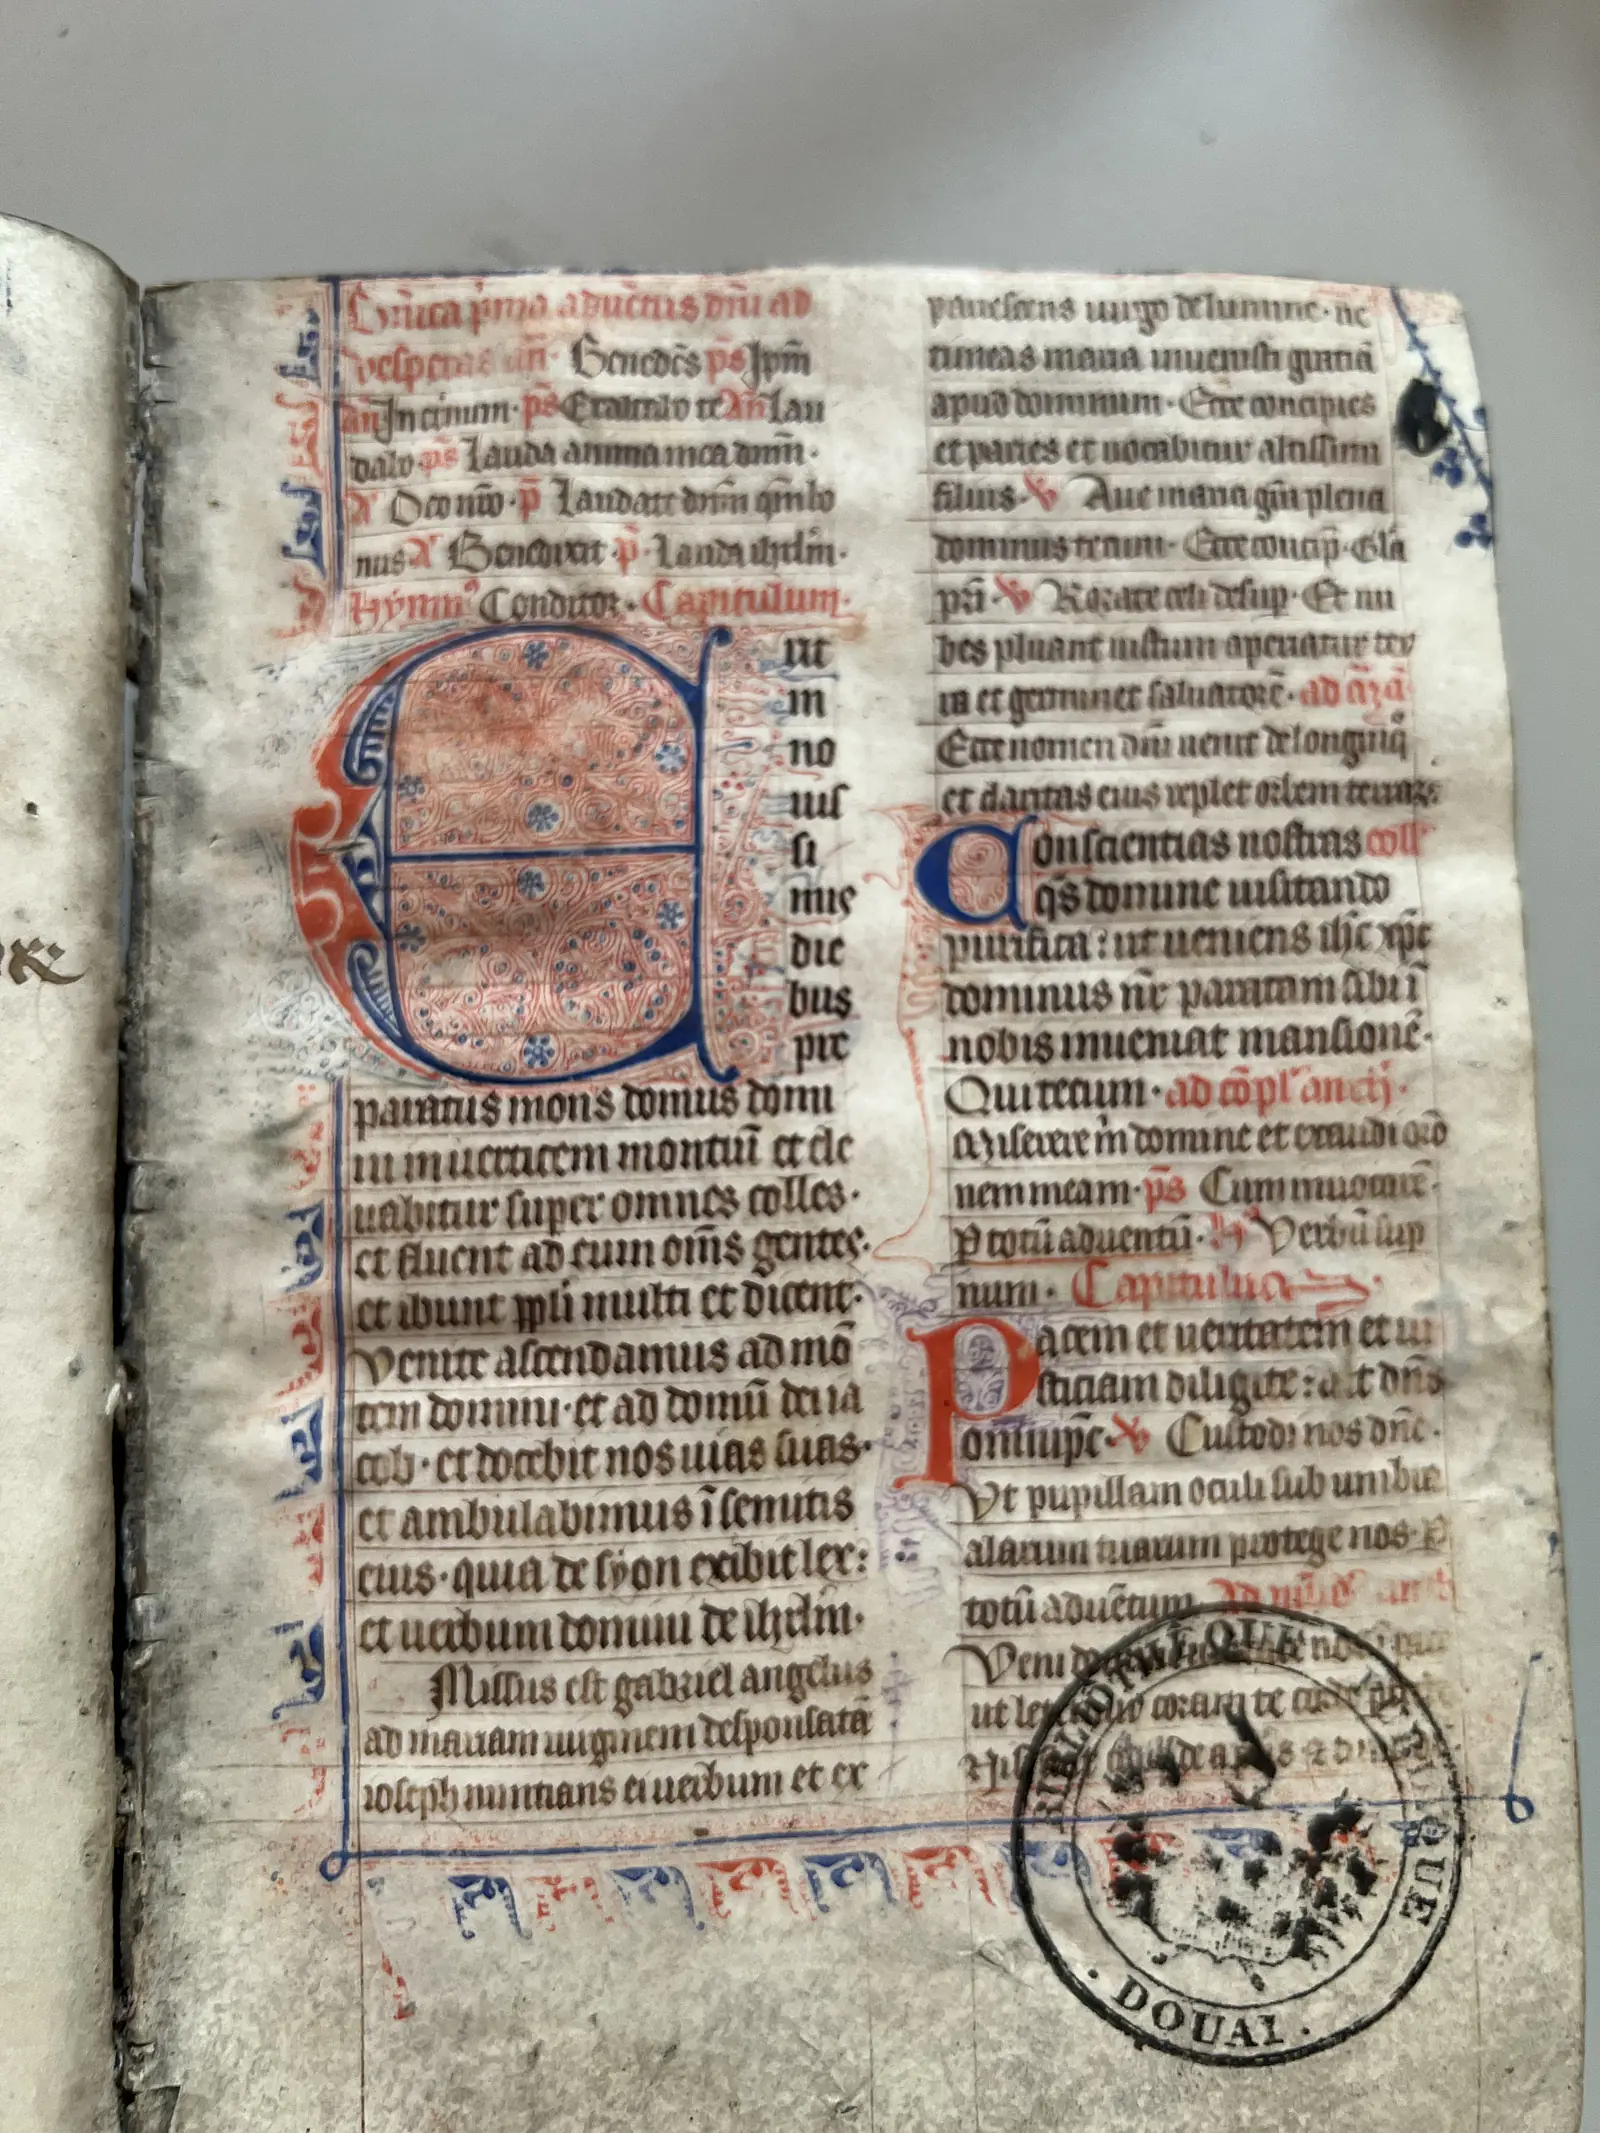 Dñica p̃ma aduẽtus dñi ad
vesperas añ. Benedc̃s ps̃ Ipm̃
añ In eternum. ps̃ Exaltabo te Añ Lau
dabo ps̃ Lauda anima mea dnm̃.
A Deo nr̃o. p̃ Laudate dnm̃ qm̃ bo
nus A Benedixit p̃. Lauda ihrlm̃.
Hymn⁹ Conditor. Capitulum.
Erit
in
no
uis
si
mis
die
bus
pre
paratus mons domus domi
ni in uerticem montiũ et ele
uabitur super omnes colles.
et fluent ad eum om̃s gentes.
et ibunt ppl̃i multi et dicent.
Venite ascendamus ad mõ
tem domini. et ad domũ dei ia
cob. et docebit nos uias suas.
et ambulabimus ĩ semitis
eius. quia de syon exibit lex:
et uerbum domini de ihrlm̃.
Missus est gabriel angelus
ad mariam uirginem desponsatã
ioseph nuntians ei uerbum et ex
pauescens uirgo de lumine. ne
timeas maria inuenisti gratiã
apud dominum. Ecce concipies
et paries et uocabitur altissimi
filius. v Aue maria gr̃a plena
dominus tecum. Ecce concip̃. Gl̃a
pr̃i. v Rorate celi desup. Et nu
bes pluant iustum aperiatur ter
ra et germinet saluatorẽ. ad
Ecce nomen dñi uenit de longinq̊
et claritas eius replet orbem terrarꝝ:
Conscientias nostras coll
qs̃ domine uisitando
purifica: ut ueniens ihc̃ xp̃c
dominus nr̃ paratam sibi ĩ
nobis inueniat mansionẽ.
Qui tecum. ad cõpl̃ an
Miserere m̃ domine et exaudi orõ
nem meam. ps̃ Cum inuocarẽ.
P totũ aduentũ. H⁹ Verbũ sup
num. Capitulũ
Pacem et ueritatem et iu
sticiam diligite: ait dñs
omnip̃c. v Custodi nos dñe.
Vt pupillam oculi sub umbra
alarum tuarum protege nos. P
totũ aduẽtum. Ad
Veni
ut coram te corde
BIBLIOTHEQUE PUBLIQUE
. DOUAI .